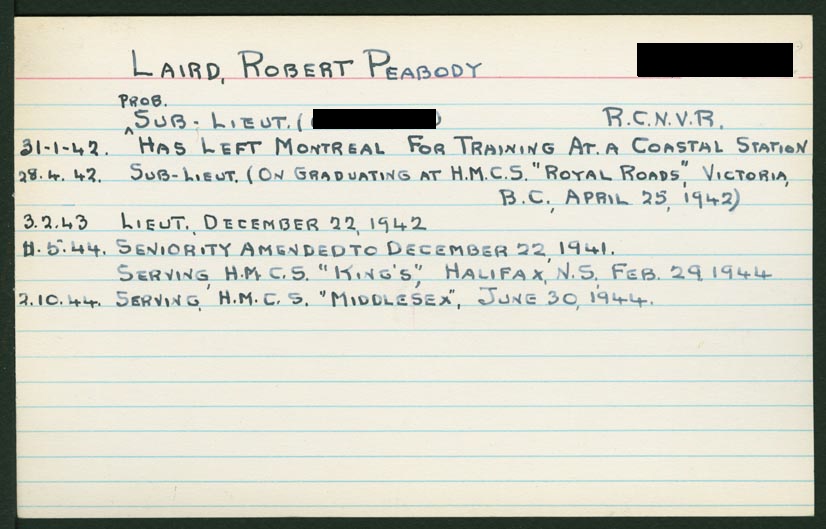 LAIRD, ROBERT PEABODY
PROB.
SUB-LIEUT. ( ) R.C.N.V.R.
31-1-42. HAS LEFT MONTREAL FOR TRAINING AT A COASTAL STATION
28.4.42. SUB-LIEUT. (ON GRADUATING AT H.M.C.S. "ROYAL ROADS", VICTORIA,
B.C., APRIL 25, 1942)
3.2.43 LIEUT., DECEMBER 22, 1942
11.5.44. SENIORITY AMENDED TO DECEMBER 22, 1941.
SERVING, H.M.C.S. "KING'S", HALIFAX, N.S. FEB. 29, 1944
2.10.44. SERVING, H.M.C.S. "MIDDLESEX", JUNE 30, 1944.